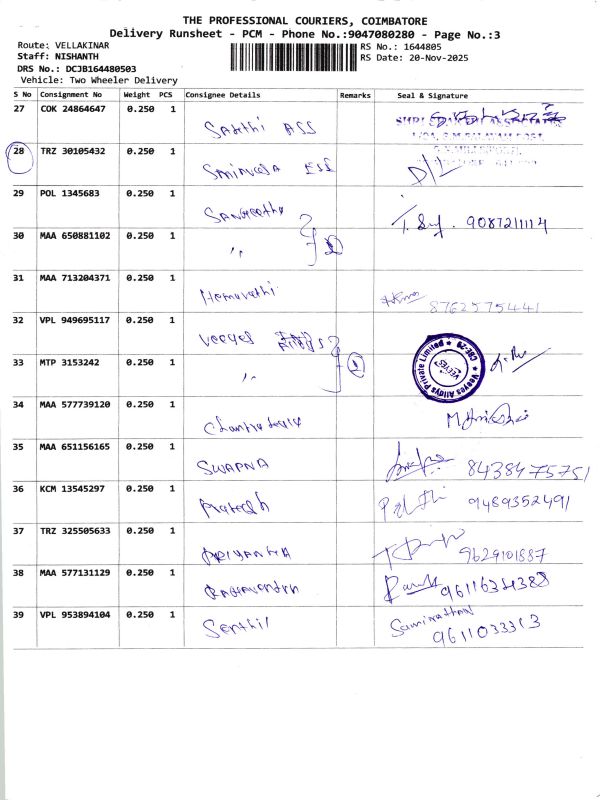 THE PROFESSIONAL COURIERS, COIMBATORE
Delivery Runsheet - PCM - Phone No.:9047080280 - Page No.:3
Route: VELLAKINAR
RS No.: 1644805
Staff: NISHANTH
RS Date: 20-Nov-2025
DRS No.: DCJB164480503
Vehicle: Two Wheeler Delivery
S No Consignment No Weight PCS Consignee Details Remarks Seal & Signature
27 COK 24864647 0.250 1 Sakthi ASS
28 TRZ 30105432 0.250 1 D/L
29 POL 1345683 0.250 1 Sangeetha 9087211114
30 MAA 650881102 0.250 1 〃 2
31 MAA 713204371 0.250 1 Hemavathi 8762575441
32 VPL 949695117 0.250 1 Veeyes
33 MTP 3153242 0.250 1 〃 Veeyes Alloys Private Limited CBE-29 VEEYES
34 MAA 577739120 0.250 1
35 MAA 651156165 0.250 1 SWAPNA 8438475751
36 KCM 13545297 0.250 1 Prateesh 9489352491
37 TRZ 325505633 0.250 1 PRIYANKA 9629101887
38 MAA 577131129 0.250 1 Ragavendra 9611634388
39 VPL 953894104 0.250 1 Senthil Saminathan 9611033313